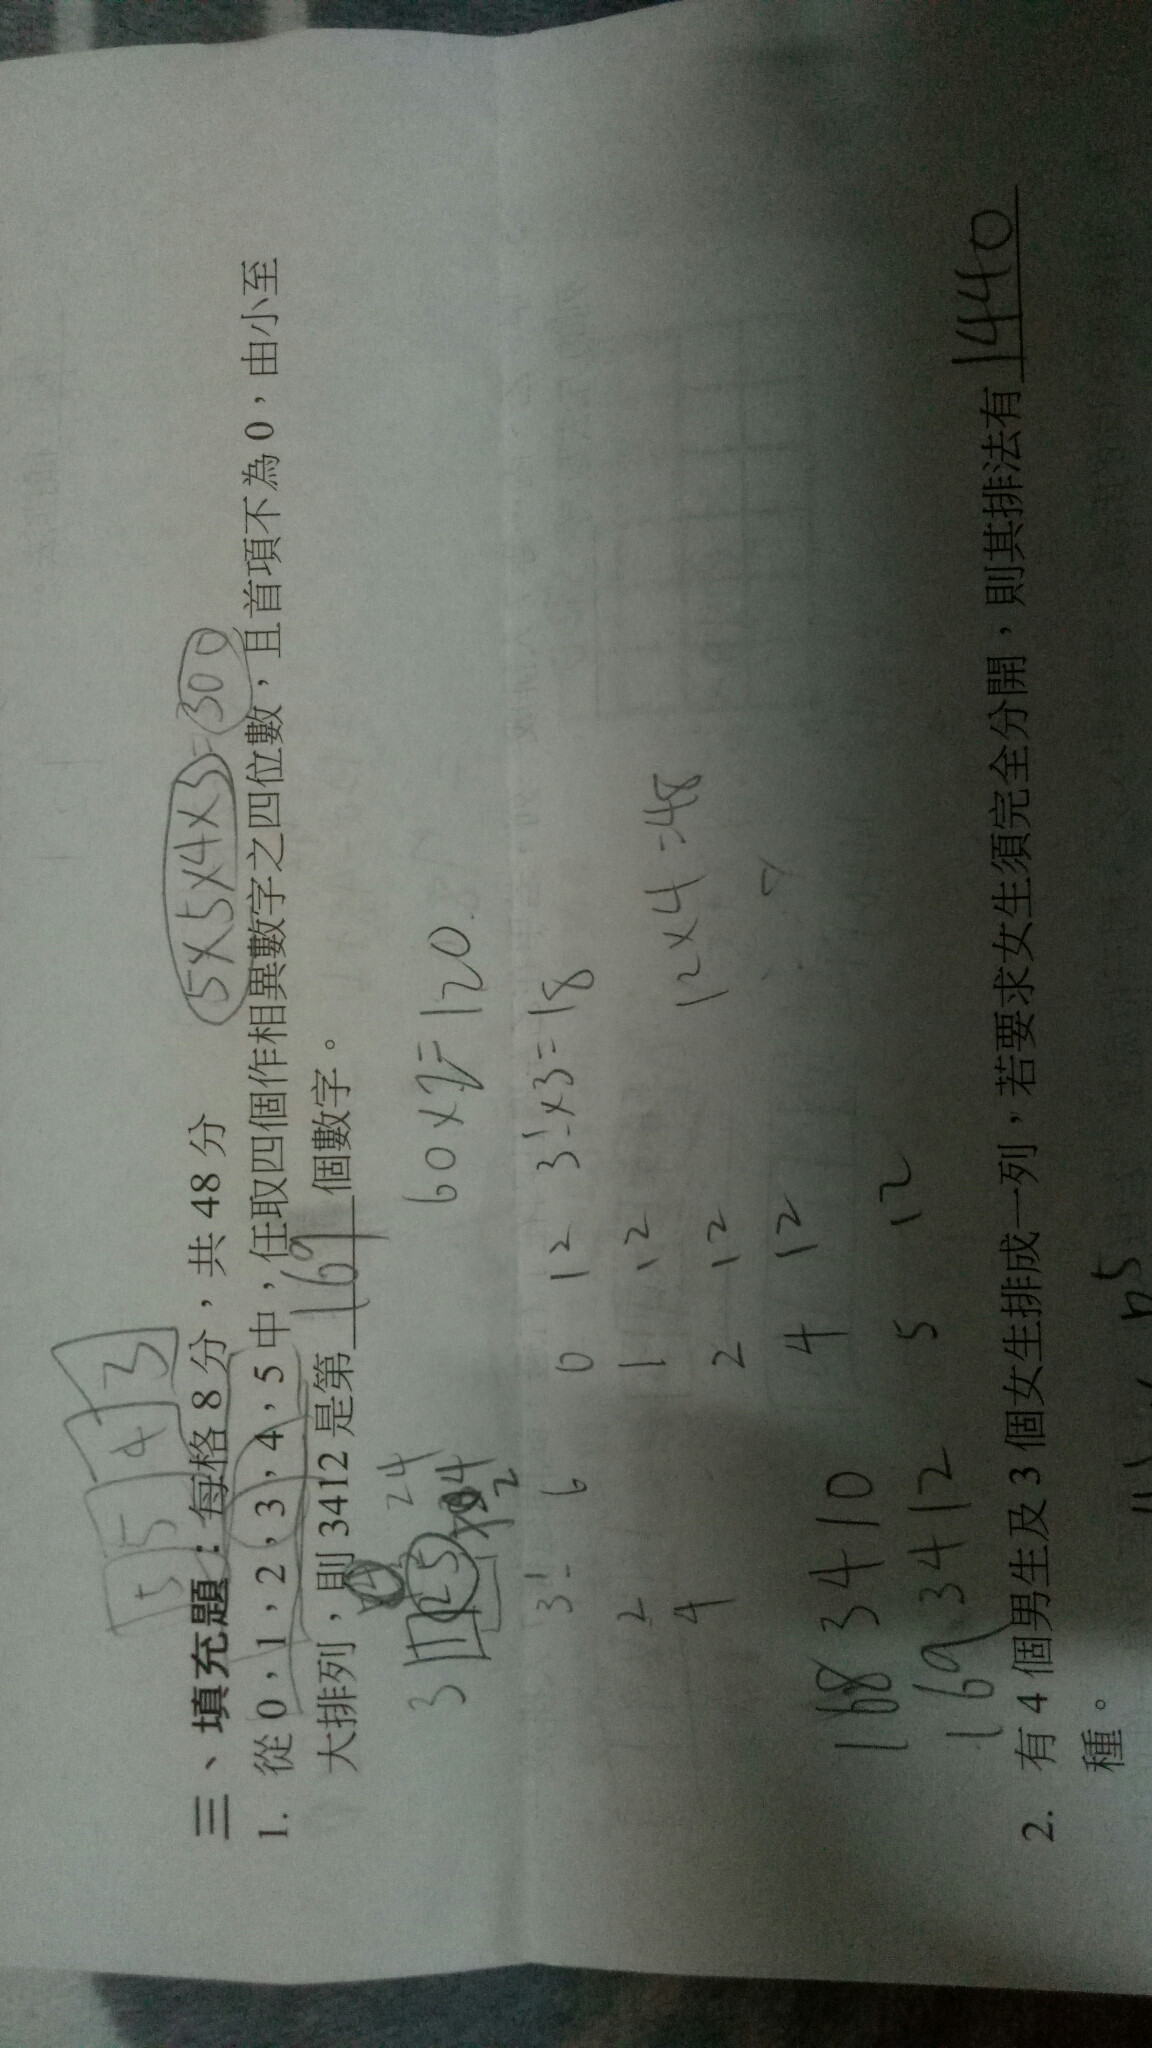 5 5 4 3
5×5×4×3=300
三、填充題：每格 8 分，共 48 分
1. 從 0，1，2，3，4，5 中，任取四個作相異數字之四位數，且首項不為 0，由小至
大排列，則 3412 是第 169 個數字。
24
60×2=120
3!=6 0 12 3!×3=18
2 1 12
4 2 12 12×4=48
4 12
168 3410
5 12
169 3412
2. 有 4 個男生及 3 個女生排成一列，若要求女生須完全分開，則其排法有 1440
種。